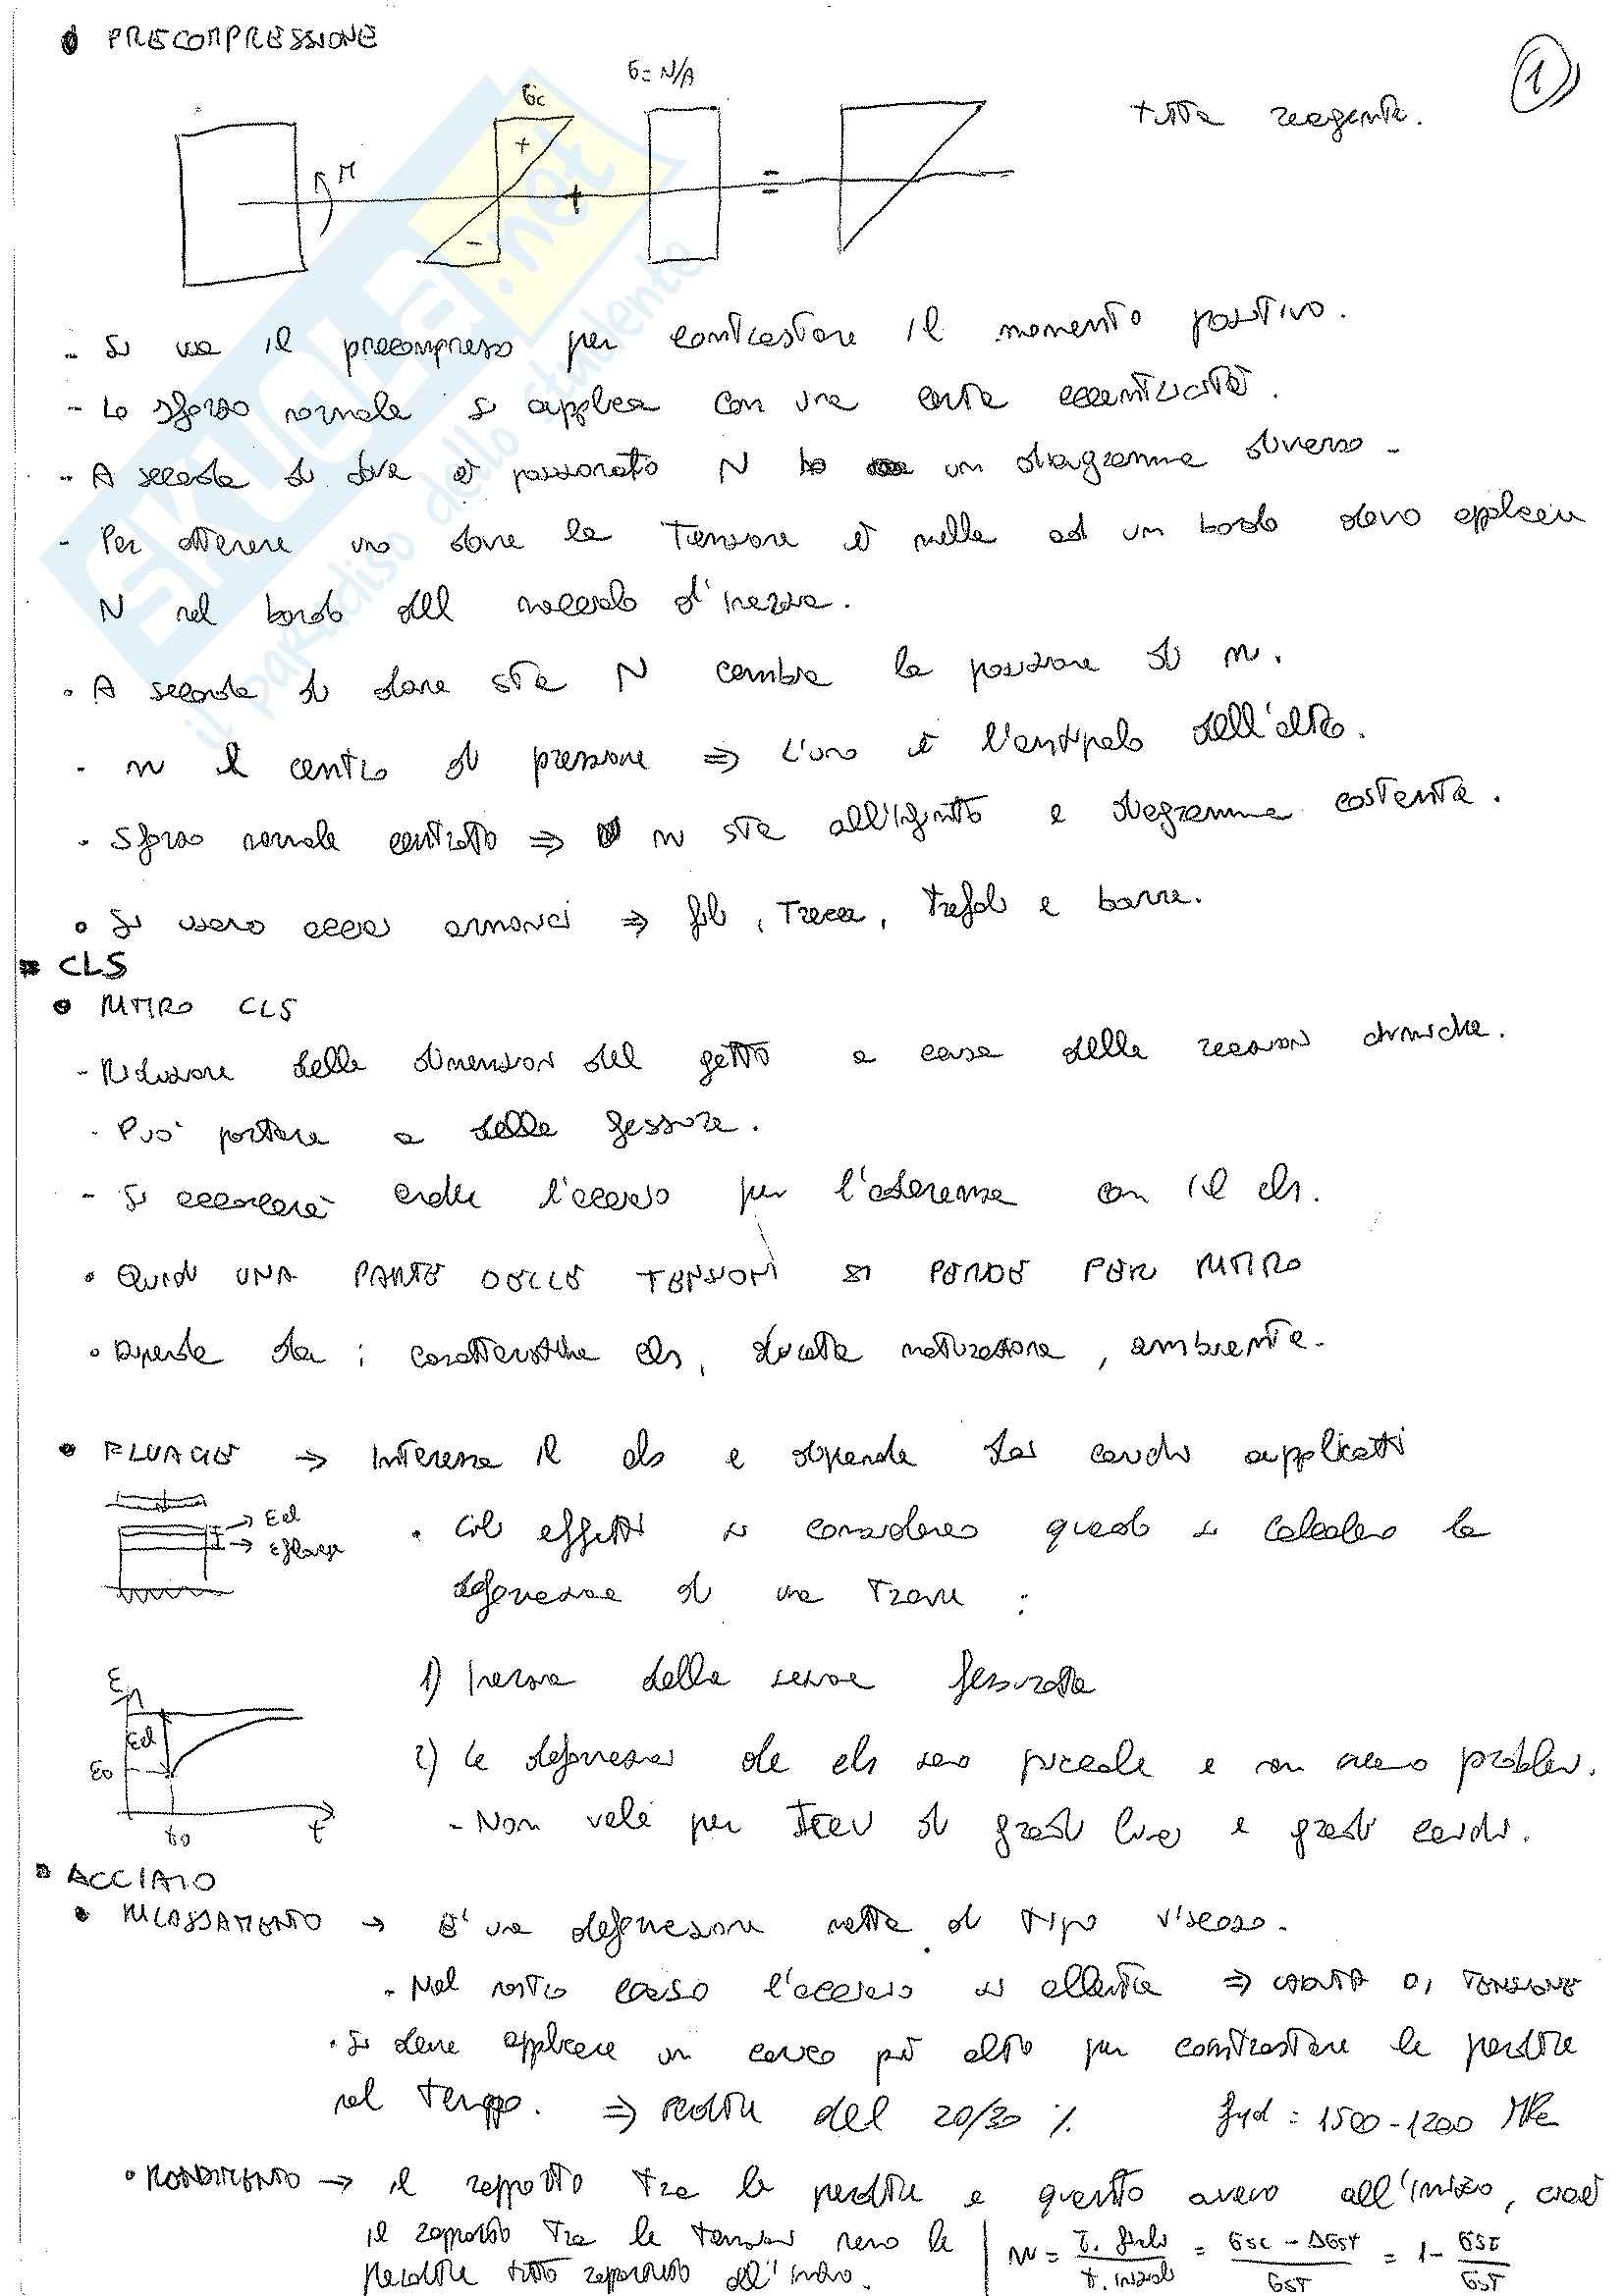 • PRECOMPRESSIONE
1
σ = N/A
σc
tutta reagente.
M
+
-
+
=
- Si usa il precompresso per contrastare il momento positivo.
- Lo sforzo normale si applica con una certa eccentricità.
- A seconda di dove è posizionato N ho un diagramma diverso -
- Per ottenere uno dove la tensione è nulla ad un bordo devo applicare
N nel bordo del nocciolo d'inerzia.
• A seconda di dove sta N cambia la posizione di n.
- n il centro di pressione ⇒ L'uno è l'antipolo dell'altro.
• Sforzo normale centrato ⇒ n sta all'infinito e diagramma costante.
• Si usano acciai armonici ⇒ fili, trecce, trefoli e barre.
CLS
• RITIRO CLS
- Riduzione delle dimensioni del getto a causa delle reazioni chimiche.
- Può portare a delle fessure.
- Si accorcerà anche l'acciaio per l'aderenza con il cls.
• QUINDI UNA PARTE DELLE TENSIONI SI PERDE PER RITIRO
• Dipende da: caratteristiche cls, durata maturazione, ambiente.
• FLUAGE → Interessa il cls e dipende dai carichi applicati
εel
εfluage
• Gli effetti si considerano quando si calcolano le
deformazione di una trave :
1) Inerzia della sezione fessurata
ε
εel
ε0
t0
t
2) Le deformazioni del cls sono piccole e non creano problemi.
- Non vale per travi di grandi luci e grandi carichi.
ACCIAIO
• RILASSAMENTO → È una deformazione netta di tipo viscoso.
- Nel nostro caso l'acciaio si allenta ⇒ CADUTA DI TENSIONE
• Si deve applicare un carico più alto per contrastare le perdite
nel tempo. ⇒ perdite del 20/30 % fyd = 1500-1200 MPa
• RENDIMENTO → il rapporto tra le perdite e quanto avevo all'inizio, cioè
il rapporto tra le tensioni meno le
perdite tutto rapportato all'inizio.
= t. finale / t. iniziale = σsi - Δσst / σsi = 1 - σsi / σsi